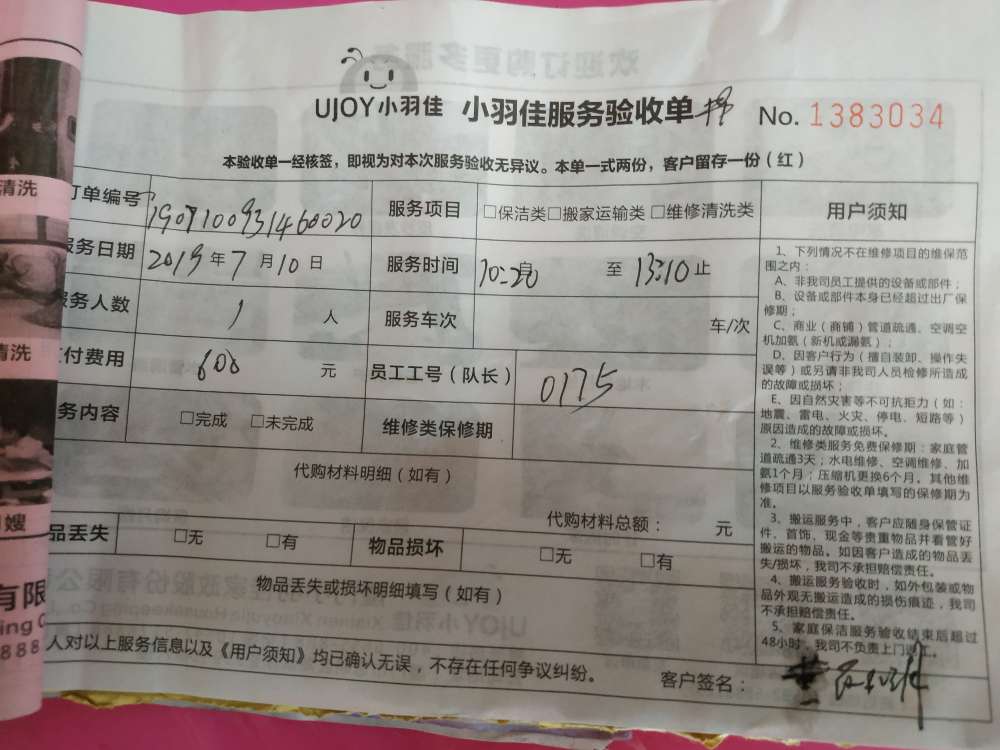 UJOY小羽佳 小羽佳服务验收单 No. 1383034
本验收单一经核签，即视为对本次服务验收无异议。本单一式两份，客户留存一份（红）
订单编号 1907100931460020 服务项目 □保洁类□搬家运输类 □维修清洗类
服务日期 2019年7月10日 服务时间 10:20 至 13:10止
服务人数 1 人 服务车次 车/次
支付费用 600 元 员工工号（队长） 0175
服务内容 □完成 □未完成 维修类保修期
代购材料明细（如有）
代购材料总额： 元
物品丢失 □无 □有 物品损坏 □无 □有
物品丢失或损坏明细填写（如有）
人对以上服务信息以及《用户须知》均已确认无误，不存在任何争议纠纷。
客户签名：
用户须知
1、下列情况不在维修项目的维保范
围之内：
A、非我司员工提供的设备或部件；
B、设备或部件本身已经超过出厂保
修期；
C、商业（商铺）管道疏通、空调空
机加氨（新机或漏氨）；
D、因客户行为（擅自装卸、操作失
误等）或另请非我司人员检修所造成
的故障或损坏；
E、因自然灾害等不可抗拒力（如：
地震、雷电、火灾、停电、短路等）
原因造成的故障或损坏。
2、维修类服务免费保修期：家庭管
道疏通3天；水电维修、空调维修、加
氨1个月；压缩机更换6个月。其他维
修项目以服务验收单填写的保修期为
准。
3、搬运服务中，客户应随身保管证
件、首饰、现金等贵重物品并看管好
搬运的物品。如因客户造成的物品丢
失/损坏，我司不承担赔偿责任。
4、搬运服务验收时，如外包装或物
品外观无搬运造成的损伤痕迹，我司
不承担赔偿责任。
5、家庭保洁服务验收结束后超过
48小时，我司不负责上门返工。
清洗
清洗
嫂
有限
ing C
888